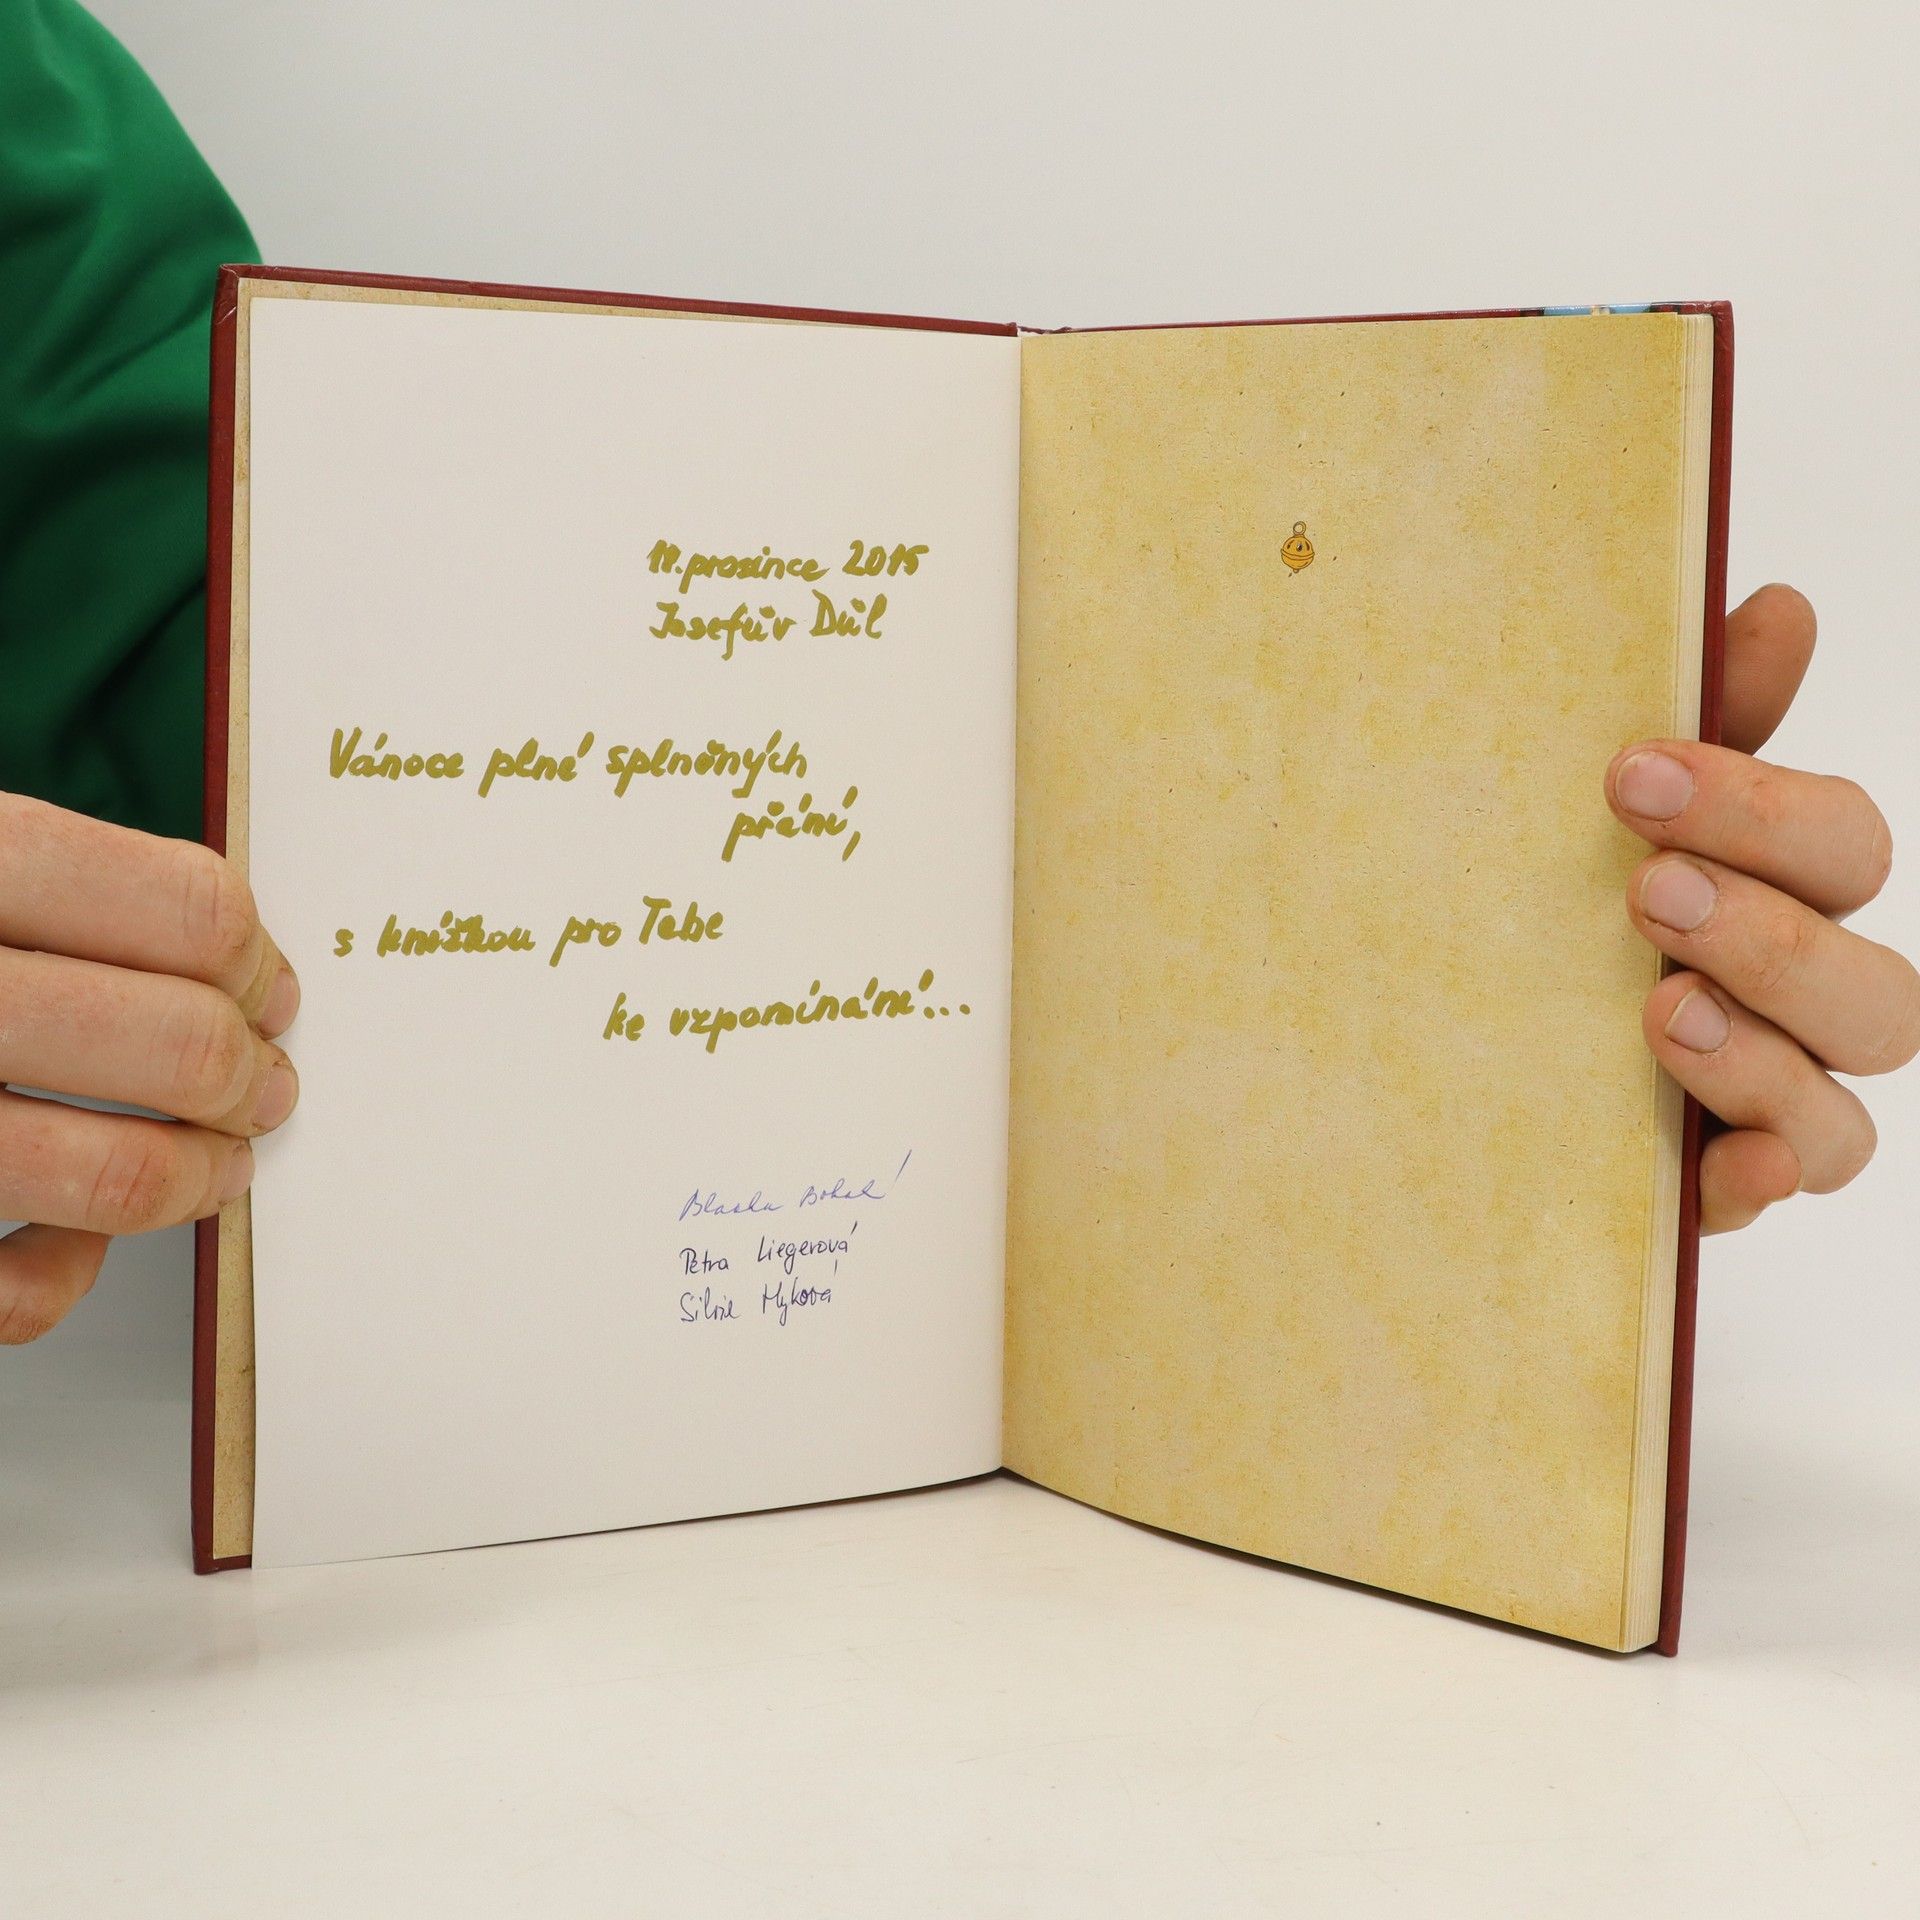 prosince 2015
Josefův Důl
Vánoce plné splněných
přání,
s knížkou pro Tebe
ke vzpomínání...
Petra Liegerová
Silvie